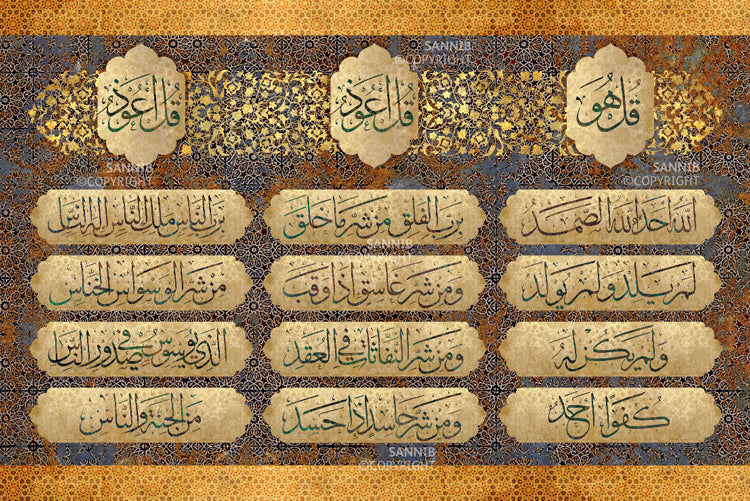 SANNIB
©COPYRIGHT
قُل هُوَ
اللهُ أَحَد اللهُ الصَّمَدُ
لم يلد ولم يولد
ولم يكن له
كُفُوًا أحد
قُل أعُوذُ
برب الفلق من شر ما خلق
ومن شر غاسق إذا وقب
ومن شر النفاثات في العقد
ومن شر حاسد إذا حسد
قُل أعُوذُ
برب الناس ملك الناس إله الناس
من شر الوسواس الخناس
الذي يوسوس في صدور الناس
من الجنة والناس
SANNIB
©COPYRIGHT
SANNIB
©COPYRIGHT
SANNIB
©COPYRIGHT
SANNIB
©COPYRIGHT